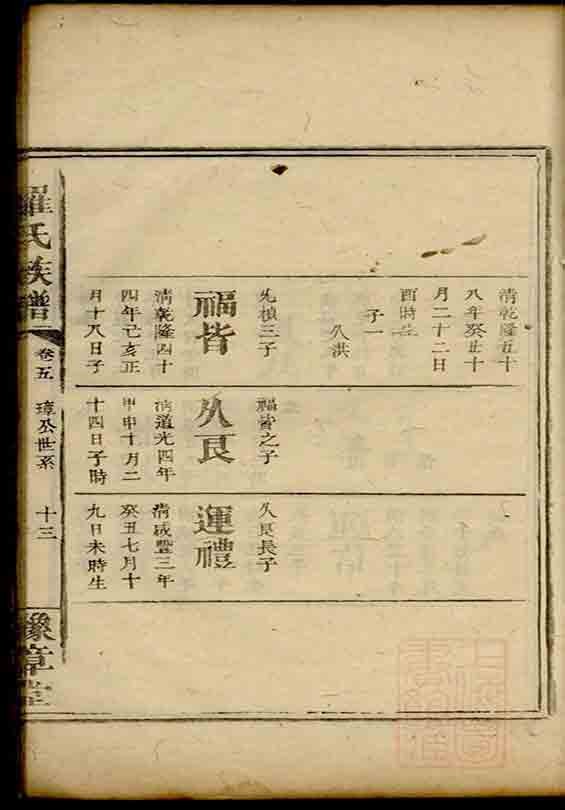 清乾隆五十
八年癸丑十
月二十二日
酉時生
子一
久洪
先楨三子
福皆
清乾隆四十
四年己亥正
月十八日子
福皆之子
久良
清道光四年
甲申十月二
十四日子時
久良長子
運禮
清咸豐三年
癸丑七月十
九日未時生
羅氏族譜
卷五
璋公世系
十三
豫章堂